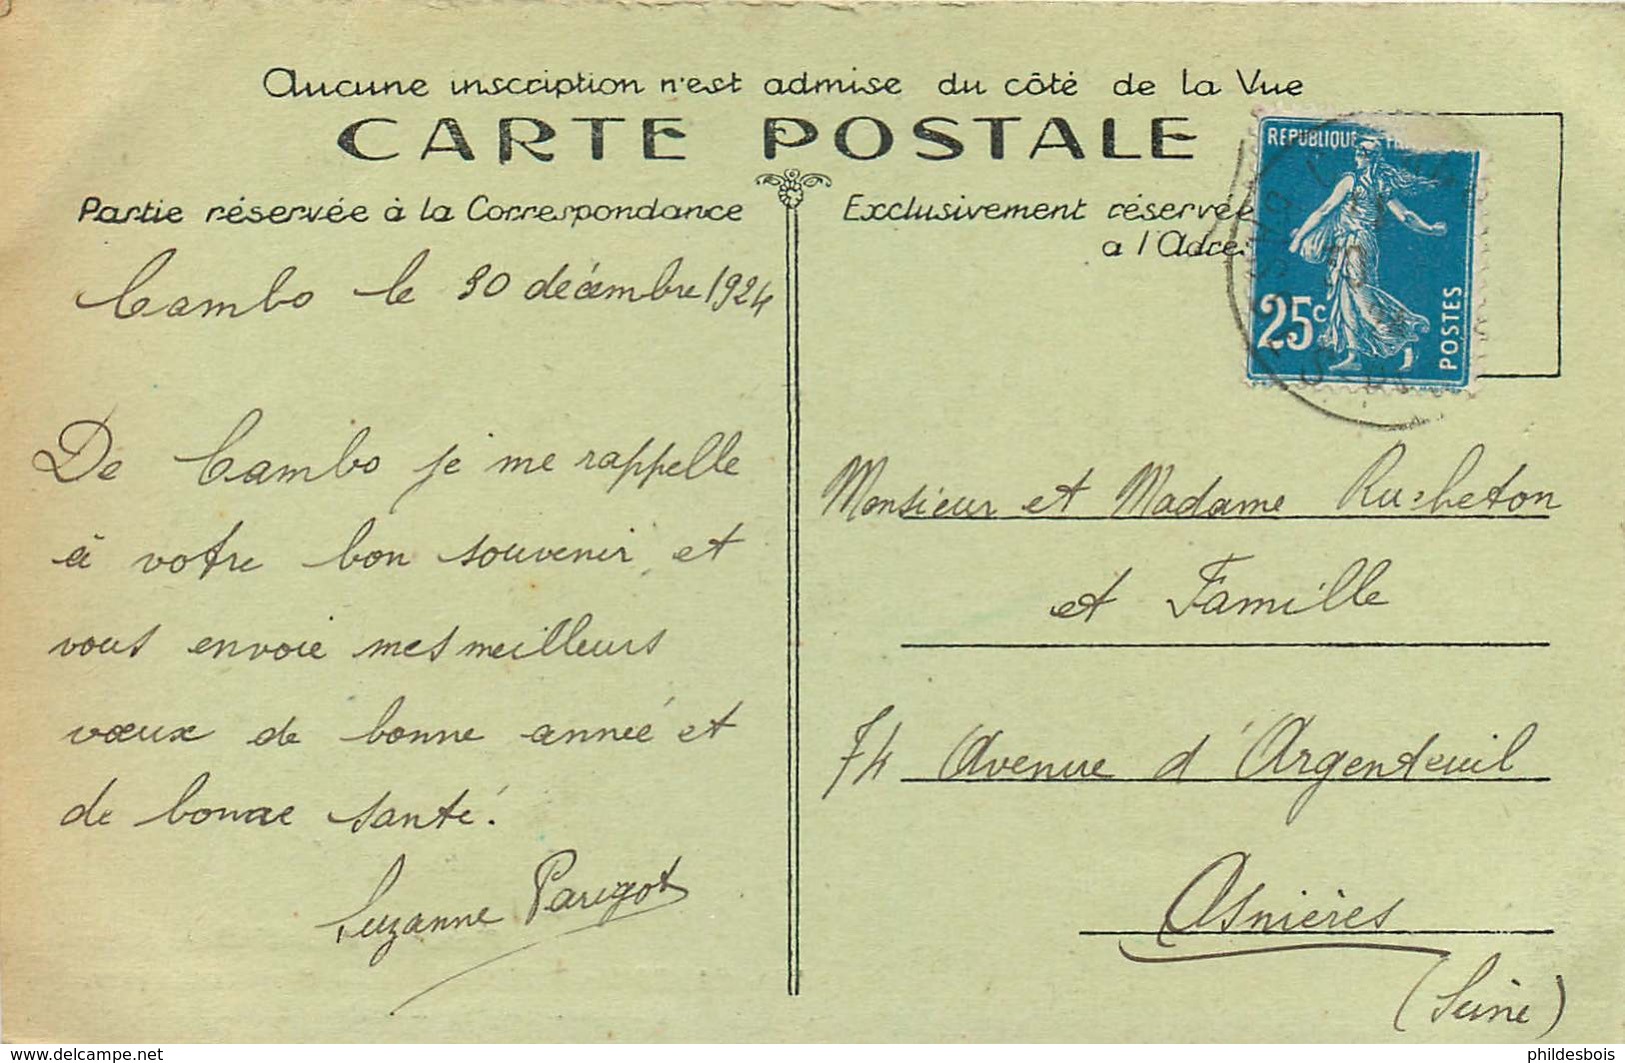 Aucune inscription n'est admise du côté de la Vue
CARTE POSTALE
Partie réservée à la Correspondance
Cambo le 30 décembre 1924
De Cambo je me rappelle
à votre bon souvenir et
vous envoie mes meilleurs
vœux de bonne année et
de bonne santé.
Suzanne Parigot
Exclusivement réservée
a l'Adre
REPUBLIQUE
25c
POSTES
Monsieur et Madame Rucheton
et Famille
74 Avenue d'Argenteuil
Asnières
(Seine)
http://www.delcampe.net
phildesbois